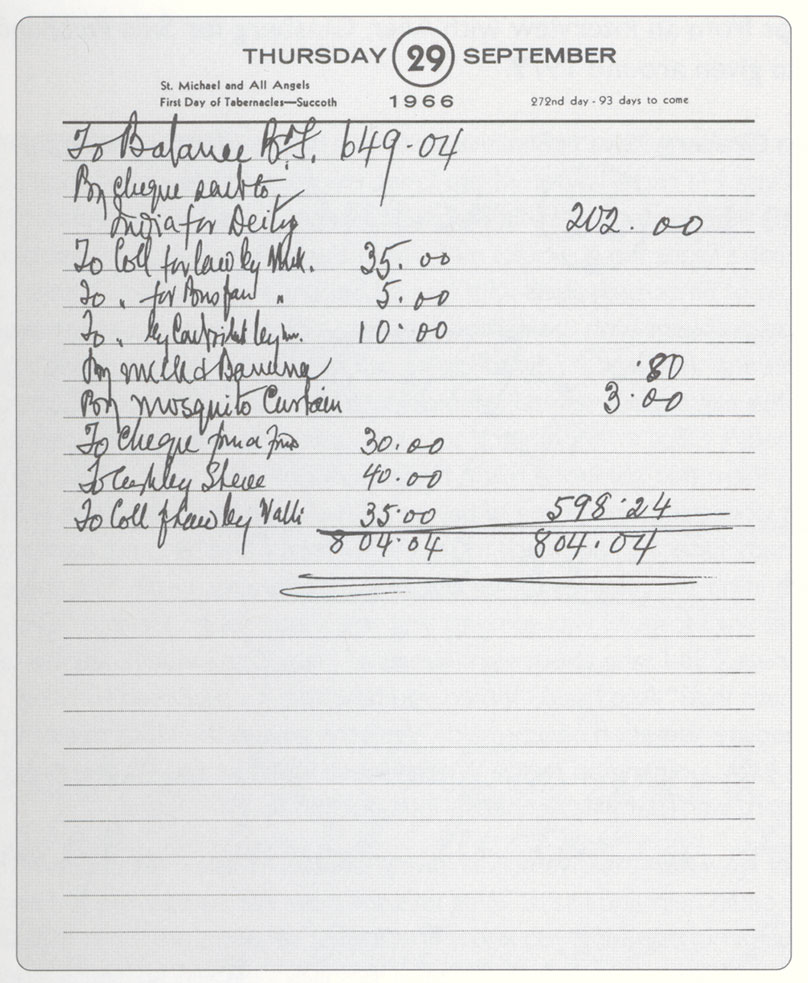 THURSDAY 29 SEPTEMBER
St. Michael and All Angels
First Day of Tabernacles—Succoth 1966 272nd day - 93 days to come
To Balance B.F. 649.04
By cheque sent to
India for Deity 202.00
To Coll for law by Muk. 35.00
To " for " 5.00
To " by 10.00
By milk & Banana .80
By Mosquito Curtain 3.00
To Cheque from a 30.00
To 40.00
To Coll f law by Valli 35.00 598.24
804.04 804.04